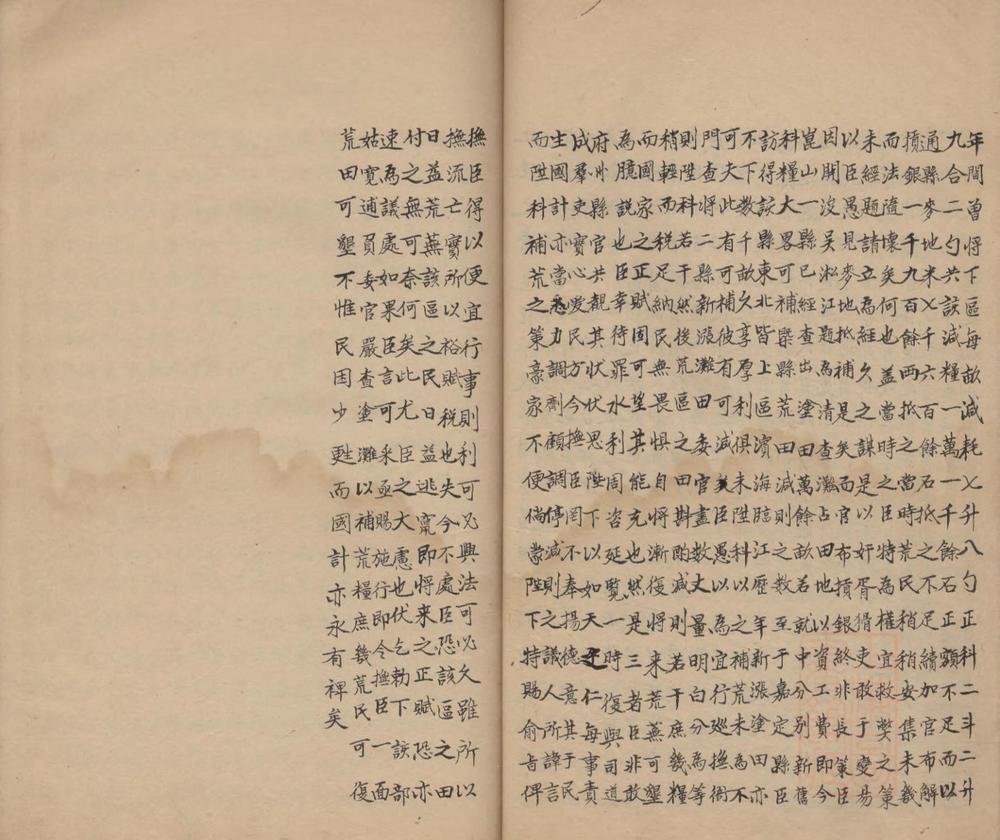 年間曾將下區每畝減耗七升八勺正科二斗二升
九合二勺共該減糧一萬一千餘石正額不足而以
通縣麥地米七千六百餘石抵之不足續加官布解
攢銀一千九百餘兩抵之當時荒民稍稍安集未幾
而法隨壊矣何也蓋當時之臣特為權宜救獘之策
未經題請立為經久之謀是以奸胥猾吏敢于變易
以臣愚見麥地抵補是矣而官布攢銀終非長策臣
因開没吴淞江題為清查灘占田地以資工費即今
崑山一縣已經查出塗田萬餘畝若就中分別新舊
科糧大畧可補槩縣荒田減則之数至于嘉定縣臣
訪得該縣東北皆上區濱海臨江歷年新漲塗田亦
不下数千畝久享厚利俱未陞科以之補荒未為不
可夫此有可補彼有可減矣臣愚以為宜行廵撫衙
門查將二縣新漲灘田委官盡数丈量明白分為等
則陞科若干然後荒區之田斟酌減則若干庶幾糧
稍輕而税足納民無畏惧自將漸復將来荒蕪可墾
而國家之正賦固可望其能充也然是三者臣非敢
為臆說也臣幸待罪水利周咨延覧一時復與司道
府州縣官共觀其狀伏思陛下以如天之仁每事責
成羣吏實心愛民方今撫臣罔不奉揚德意其于民
生國計亦當悉力調劑顧調停減則之議人所諱言
而陞科補荒之策豪家不便倘蒙陛下特賜俞旨俾
撫臣得以便宜行事則利可必興法可必久雖所以
撫流亡實所以裕賦税也失今不處臣恐該區之田
日益荒蕪該區之民日益逃竄即將来之正賦恐亦
付之無可奈何矣此尤臣之大慮也伏乞勅下該部
速為議處如果臣言可采亟賜施行即令撫臣一面
姑寛逋負委官嚴查塗灘以補荒糧庶幾荒民可復
荒田可墾不惟民困少甦而國計亦永有裨矣